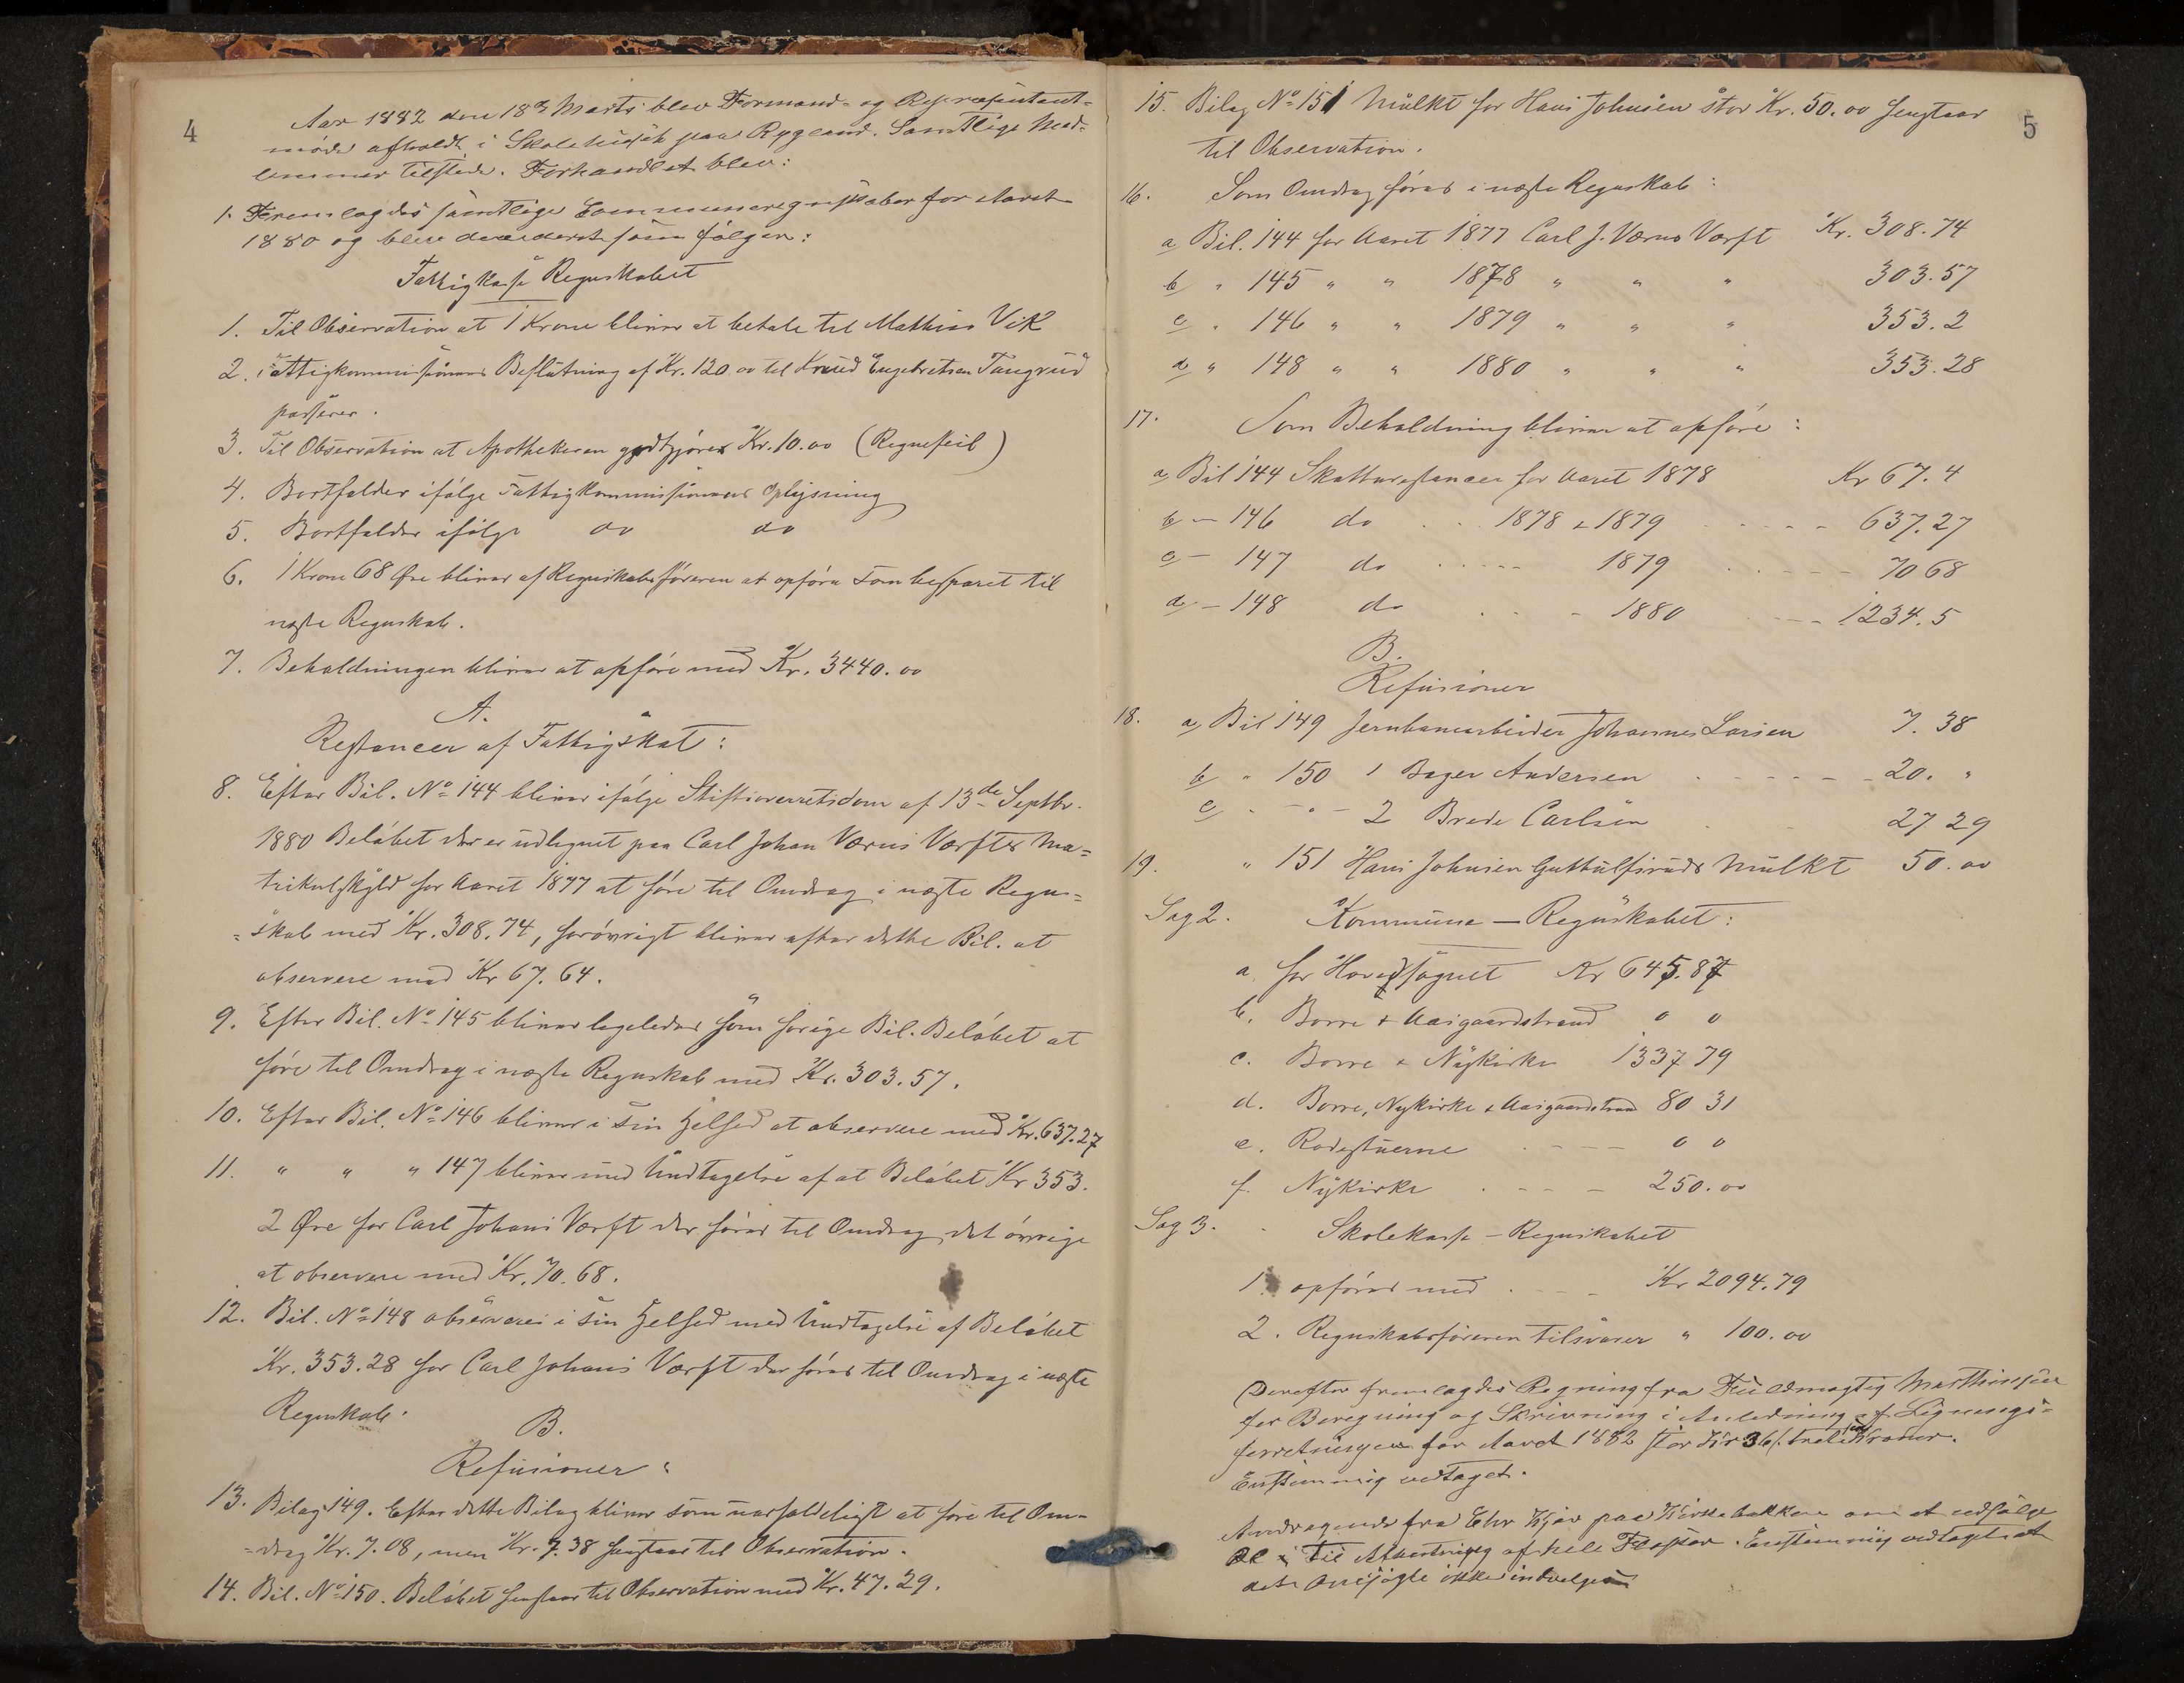 4
Aar 1882 den 18de Marts blev Formand- og Repræsentant-
möde afholdt i Skolehuset paa Rygland. Samtlige Med-
lemmer tilstede. Forhandlet blev:
1. Fremlagdes samtlige Communeregnskaber for Aaret
1880 og bleve deciderede som fölger:
Fattigkasse Regnskabet
1. Til Observation at 1 Krone bliver at betale til Mathias Vik
2. Fattigkommissionens Beslutning af Kr. 120.00 til Knud Engebretsen Tangrud
passerer.
3. Til Observation at Apothekeren godtgjöres Kr. 10.00 (Regnefeil)
4. Bortfalder ifölge Fattigkommissionens Oplysning
5. Bortfalder ifölge do do
6. 1 Krone 68 Øre bliver af Regnskabsföreren at opföre som besparet til
næste Regnskab.
7. Beholdningen bliver at opföre med Kr. 3440.00
A.
Restancer af Fattigskat:
8. Efter Bil. No 144 bliver ifölge Stiftsoverretsdom af 13de Septbr.
1880 Belöbet der er udlignet paa Carl Johan Værns Værfts Ma=
trikulskyld for Aaret 1877 at före til Omdrag i næste Regn=
=skab med Kr. 308.74, forövrigt bliver efter dette Bil. at
observere med Kr 67.64.
9. Efter Bil. No 145 bliver ligeledes som forige Bil. Belöbet at
före til Omdrag i næste Regnskab med Kr. 303.57.
10. Efter Bil. No 146 bliver i sin Helhed at observere med Kr. 637.27
11. " " " 147 bliver med Undtagelse af at Belöbet Kr 353.
2 Øre for Carl Johans Værft der föres til Omdrag det övrige
at observere med Kr. 70.68.
12. Bil. No 148 observeres i sin Helhed med Undtagelse af Belöbet
Kr. 353.28 for Carl Johans Værft der föres til Omdrag i næste
Regnskab.
B.
Refusioner:
13. Bilag 149. Efter dette Bilag bliver som uerholdeligt at före til Om-
=drag Kr. 7.08, men Kr. 7.38 henstaar til Observation.
14. Bil. No 150. Belöbet henstaar til Observation med Kr. 47.29.
5
15. Bilag No 151 Mulkt for Hans Johnsen stor Kr. 50.00 henstaar
til Observation.
16. Som Omdrag föres i næste Regnskab:
a Bil. 144 for Aaret 1877 Carl J. Værns Værft Kr. 308.74
b " 145 " " 1878 " " " 303.57
c " 146 " " 1879 " " " 353.2
d " 148 " " 1880 " " " 353.28
17. Som Beholdning bliver at opföre:
a, Bil 144 Skatterestancer for Aaret 1878 Kr 67.4
b - 146 do 1878 & 1879 637.27
c - 147 do 1879 70 68
d - 148 do 1880 1234.5
B.
Refusioner
18. a, Bil 149 Jernbanearbeider Johannes Larsen 7.38
b " 150 1 Bager Andersen 20. "
c - " - 2 Brede Carlsen 27 29
19. " 151 Hans Johnsen Guttulfsruds Mulkt 50.00
Sag 2. Kommune - Regnskabet:
a. for Hovedsognet Kr 645.87
b. Borre & Aasgaardstrand 0 0
c. Borre & Nykirke 1337 79
d. Borre, Nykirke & Aasgaardstrand 80 31
e. Rodestuerne 0 0
f. Nykirke 250.00
Sag 3. Skolekasse - Regnskabet
1. opföres med Kr 2094.79
2. Regnskabsföreren tilsvarer " 100.00
Derefter fremlagdes Regning fra Fuldmægtig Marthinsen
for Beregning og Skrivning i Anledning af Lignings-
forretningen for Aaret 1882 stor Kr 36
Enstemmig vedtaget.
Andragende fra Ehr Kjær paa Kirkebakken om at udsælge
Øl til Afhentning af hele Flasker. Enstemmig vedtaget at
det Ansögte ikke